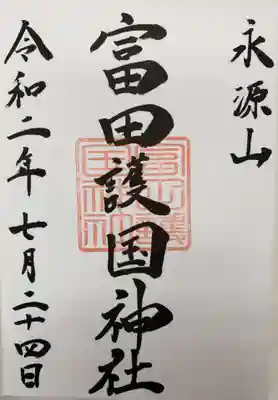 永源山
富田護国神社
令和二年七月二十四日